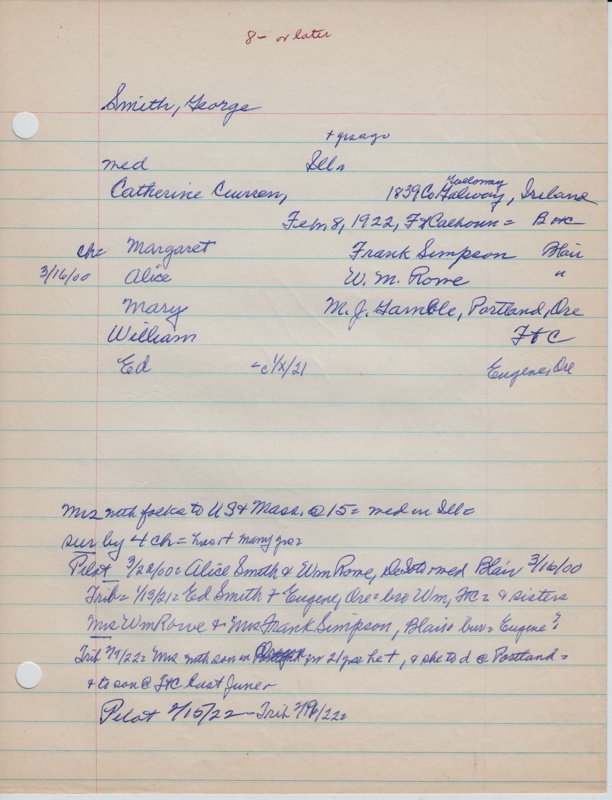 8- or later
Smith, George
+ yrs ago
med Ills
Galloway
Catherine Curren, 1839 Co Galway, Ireland
Feb 8, 1922, Ft Calhoun = B
ch= Margaret Frank Simpson Blair
3/16/00 Alice W. M. Rowe "
Mary M. J. Gamble, Portland, Ore
William Ft C
Ed 1/X/21 Eugene, Ore
Mrs with folks to US & Mass. @ 15 = med in Ill =
sur by 4 ch = many yrs
Pilot 3/20/00 = Alice Smith & Wm Rowe, DeSoto med Blair 3/16/00
Trib = 1/13/21 = Ed Smith + Eugene, Ore = bro Wm, FtC = & sisters
Mrs Wm Rowe & Mrs Frank Simpson, Blair + bur = Eugene?
Trib 2/9/22 = Mrs with son in for 21 yrs he +, & she to d @ Portland =
& to son @ FtC last June
Pilot 2/15/22 - Trib 2/16/22 =